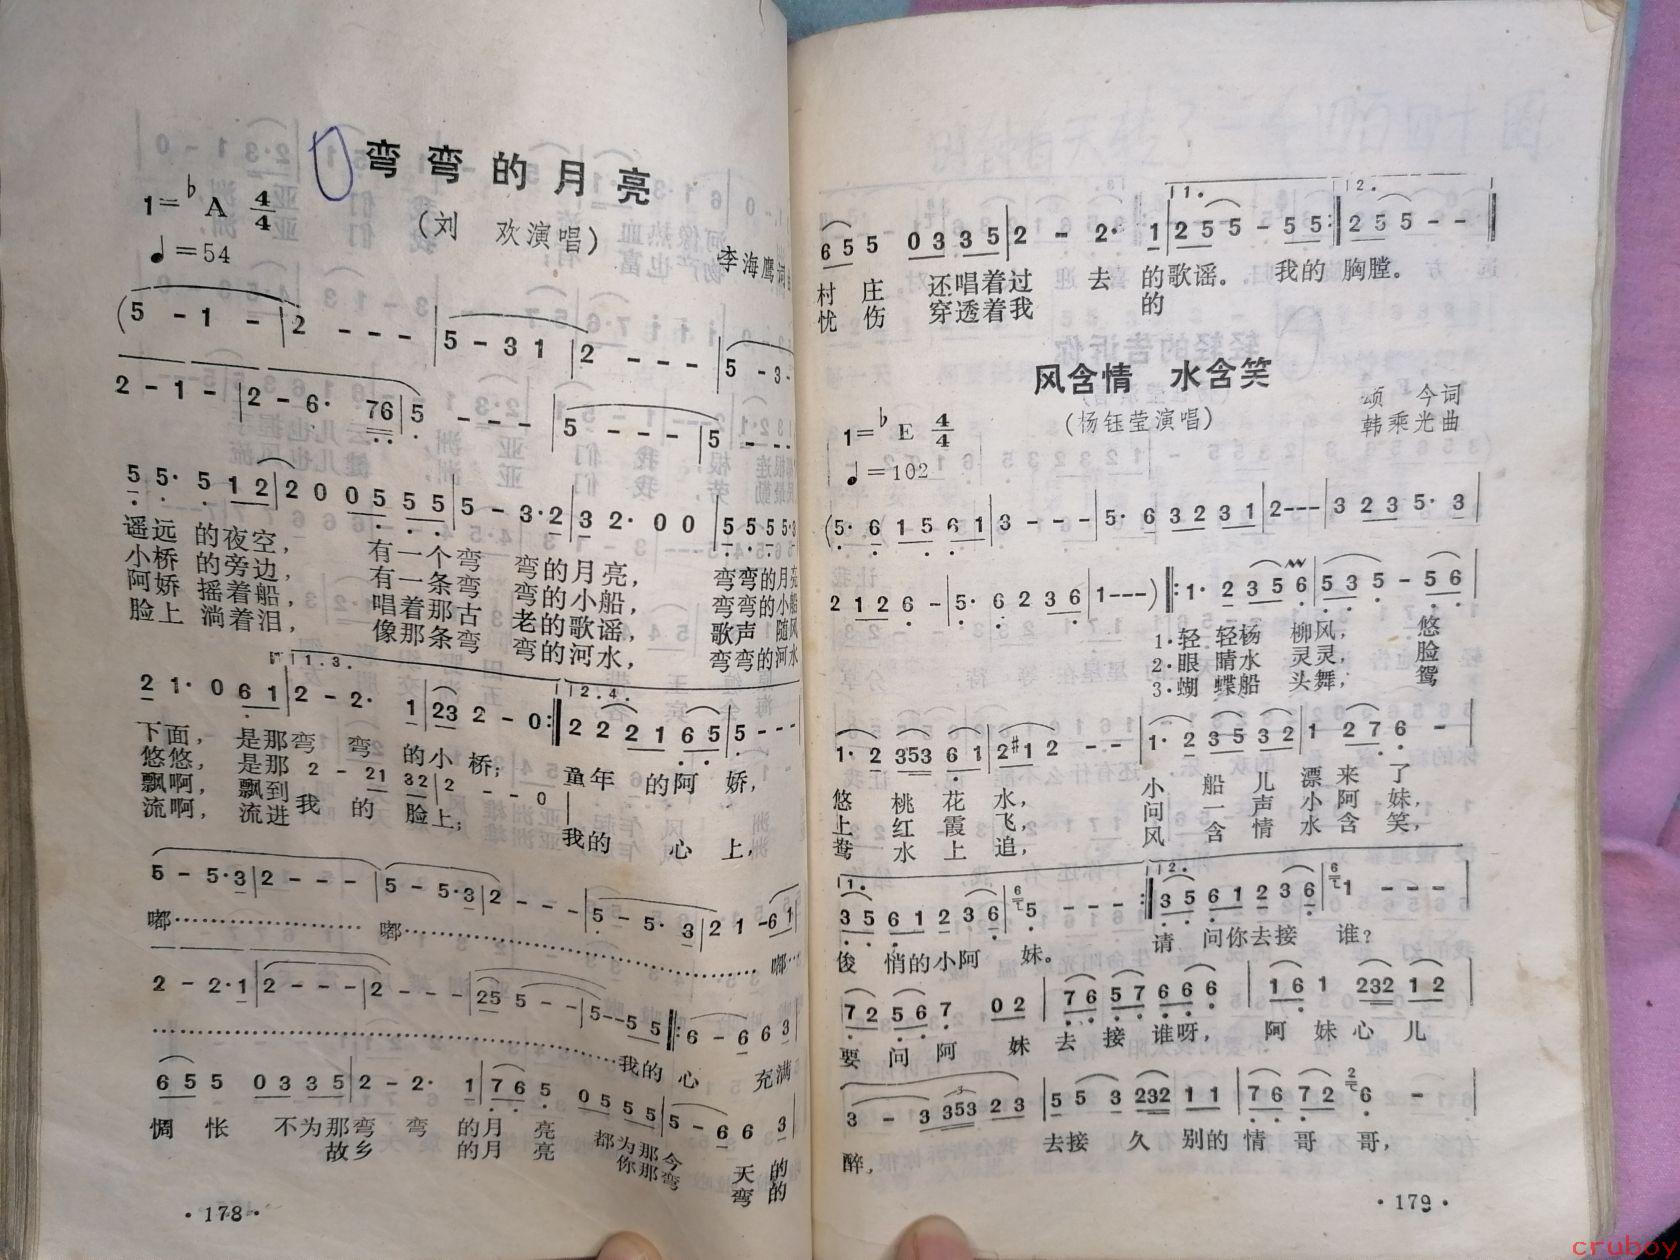 弯弯的月亮
(刘 欢演唱)
1=♭A 4/4
♩=54
李海鹰 词
(5 - 1 - | 2 - - - | 5 - 3 1 | 2 - - - | 5 - 3 -
2 - 1 - | 2 - 6· 76 | 5 - - - | 5 - - - | 5
5 5· 5 1 2 | 2 0 0 5 5 5 | 5 - 3·2 | 3 2· 0 0 | 5 5·5 5·3
遥远 的夜空, 有一个弯 弯的月亮, 弯弯的月亮
小桥 的旁边, 有一条弯 弯的小船, 弯弯的小船
阿娇 摇着船, 唱着那古 老的歌谣, 歌声 随风
脸上 淌着泪, 像那条弯 弯的河水, 弯弯的河水
1.3.
2.4.
2 1· 0 6 1 | 2 - 2· 1 | 23 2 - 0 :| 2 2 2 2 1 6 5 | 5 - - -
下面, 是那弯 弯 的小 桥; 童年 的阿 娇,
悠悠, 是那
2 - 21 32 | 2 - - 0
飘啊, 飘到
流啊, 流进 我 的 脸上; 我的 心 上,
5 - 5·3 | 2 - - - | 5 - 5·3 | 2 - - - | 5 - 5· 3 | 2 1 - 6 1
嘟…… 嘟…… 嘟
2 - 2·1 | 2 - - - | 2 - - - | 25 5 - - | 5 - - 5 5 |: 6 - 6 6 3
我的 心 充满
6 5 5 0 3 3 5 | 2 - 2· 1 | 7 6 5 0 5 5 5 | 5 - 6 6 3
惆 怅 不为那弯 弯 的月 亮 都为那今 天 的
故乡 的月 亮 你那弯 弯 的
·178·
1.
2.
6 5 5 0 3 3 5 | 2 - 2· 1 | 2 5 5 - 5 5 :| 2 5 5 - -
村 庄 还唱着过 去 的歌谣。 我的 胸膛。
忧 伤 穿透着我 的
风含情 水含笑
(杨钰莹演唱)
颂 今词
韩乘光曲
1=♭E 4/4
♩=102
(5· 6 1 5 6 1 | 3 - - - | 5· 6 3 2 3 1 | 2 - - - | 3 2 3 5· 3
2 1 2 6 - | 5· 6 2 3 6 | 1 - - -) |: 1· 2 3 5 6 | 5 3 5 - 5 6
1·轻 轻杨 柳风, 悠
2·眼 睛水 灵灵, 脸
3·蝴 蝶船 头舞, 鸳
1· 2 353 6 1 | 2 #1 2 - - | 1· 2 3 5 3 2 | 1 2 7 6 -
悠 桃 花 水, 小 船 儿 漂 来 了
上 红 霞 飞, 问 一 声 小 阿 妹,
鸯 水 上 追, 风 含 情 水 含 笑,
1.
2.
3 5 6 1 2 3 6 | 5 - - - :| 3 5 6 1 2 3 6 | 1 - - -
俊 悄的小阿 妹。 请 问你去接 谁?
7 2 5 6 7 0 2 | 7 6 5 7 6 6 6 | 1 6 1 232 1 2
要 问 阿 妹 去 接 谁呀, 阿 妹 心 儿
3 - 3 353 2 3 | 5 5 3 232 1 1 | 7 6 7 2 6 -
醉, 去接 久 别的 情 哥 哥,
·179·
cruboy